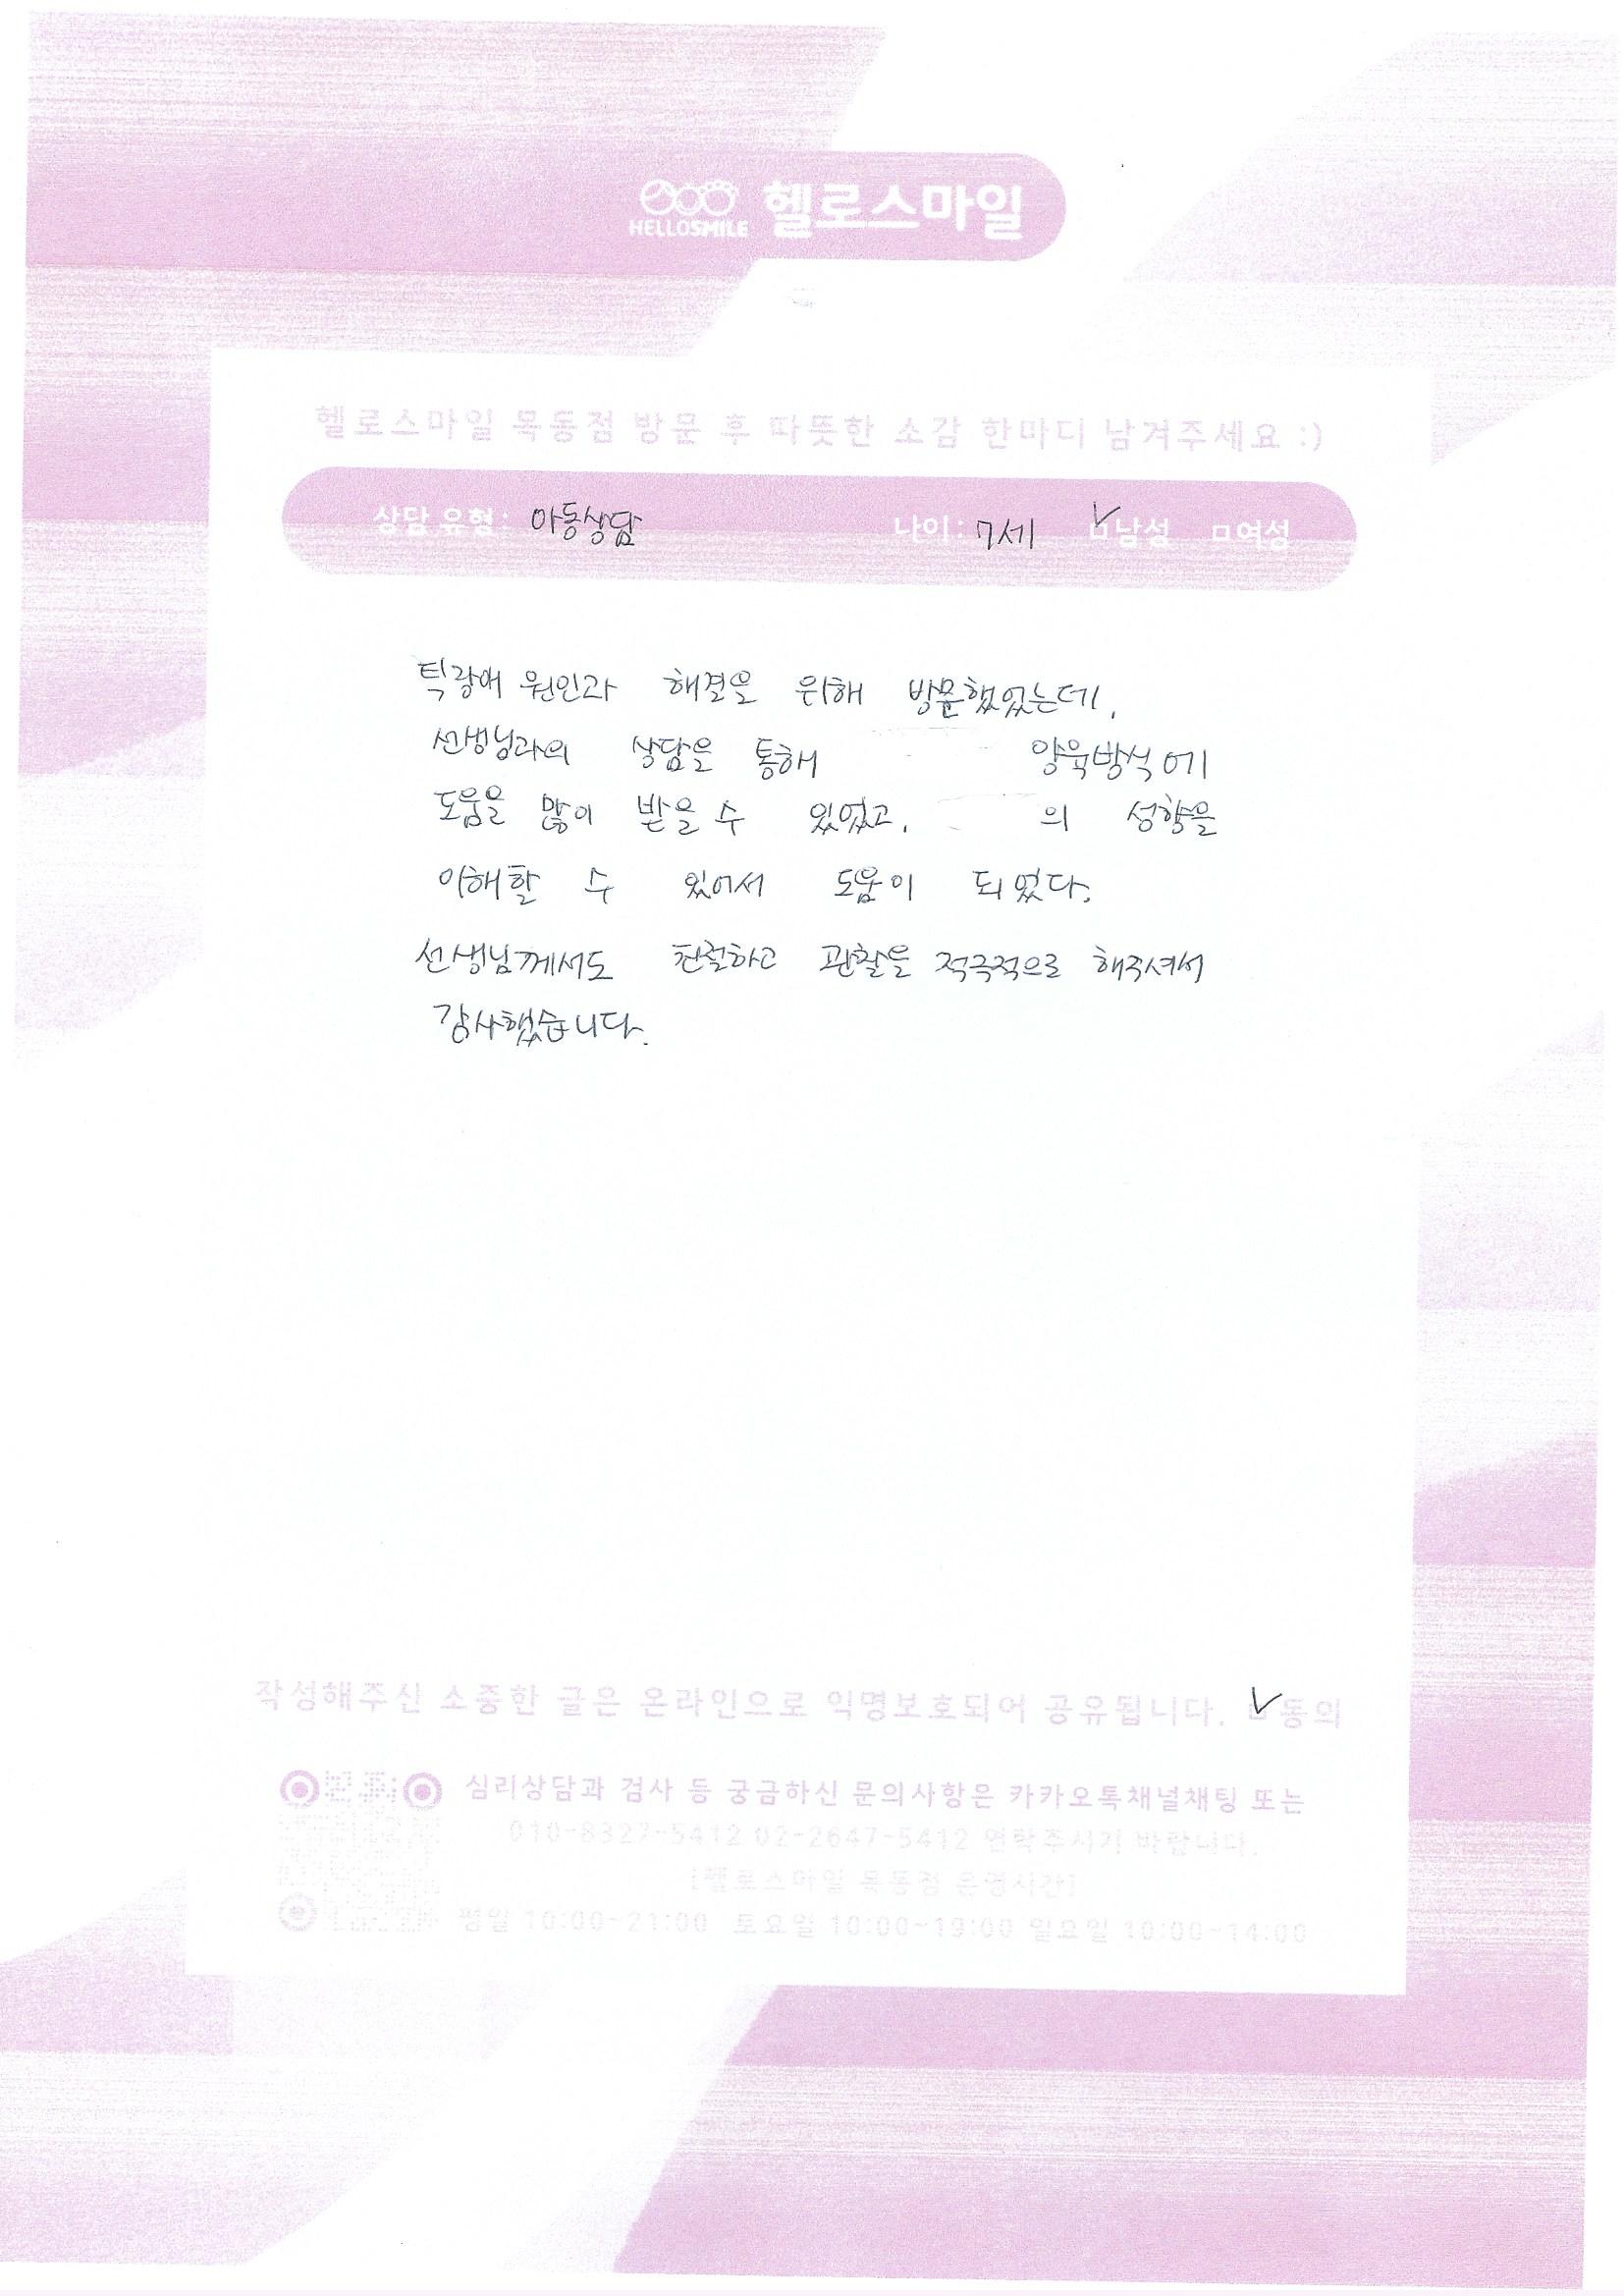 HELLOSMILE 헬로스마일
헬로스마일 목동점 방문 후 따뜻한 소감 한마디 남겨주세요 :)
상담 유형: 아동상담 나이: 7세 ✓남성 □여성
틱장애 원인과 해결을 위해 방문했었는데,
선생님과의 상담을 통해 양육방식에
도움을 많이 받을 수 있었고, 의 성향을
이해할 수 있어서 도움이 되었다.
선생님께서도 친절하고 관찰을 적극적으로 해주셔서
감사했습니다.
작성해주신 소중한 글은 온라인으로 익명보호되어 공유됩니다. ✓동의
심리상담과 검사 등 궁금하신 문의사항은 카카오톡채널채팅 또는
010-8327-5412 02-2647-5412 연락주시기 바랍니다.
[헬로스마일 목동점 운영시간]
평일 10:00~21:00 토요일 10:00~19:00 일요일 10:00~14:00